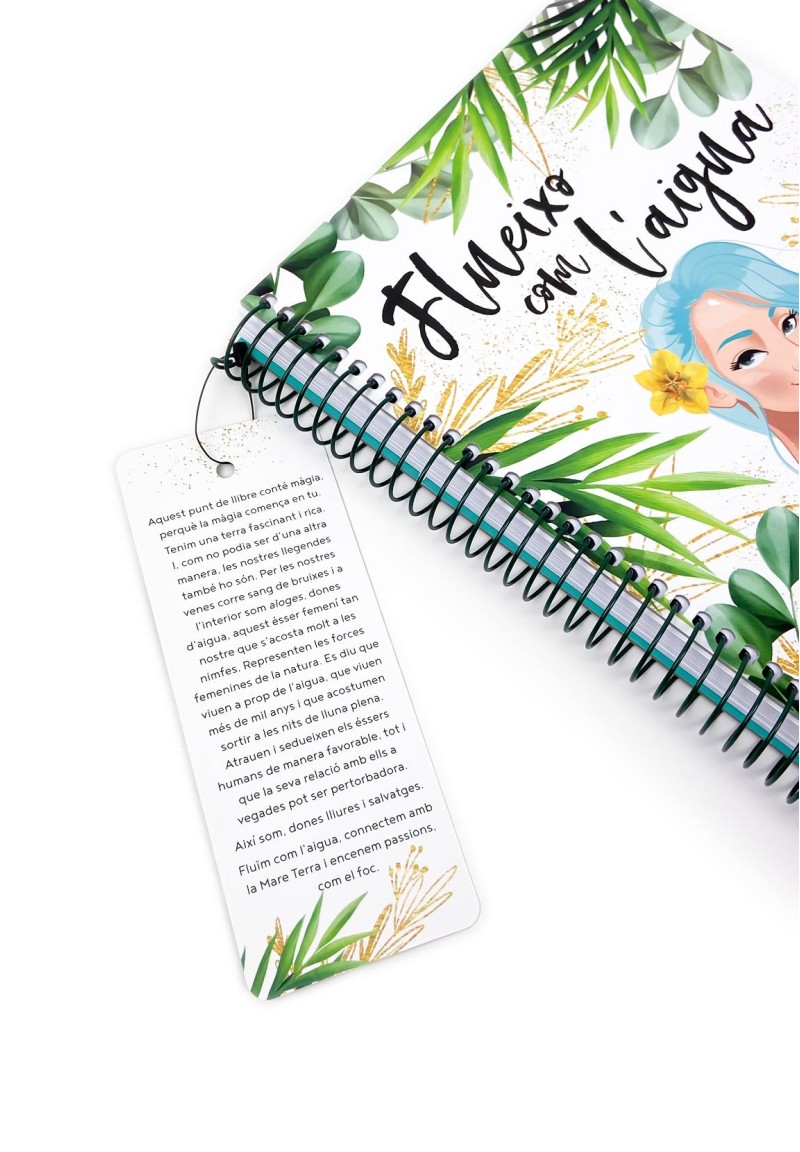 Flueixo
com l'aigua
Aquest punt de llibre conté màgia,
perquè la màgia comença en tu.
Tenim una terra fascinant i rica.
I, com no podia ser d'una altra
manera, les nostres llegendes
també ho són. Per les nostres
venes corre sang de bruixes i a
l'interior som aloges, dones
d'aigua, aquest ésser femení tan
nostre que s'acosta molt a les
nimfes. Representen les forces
femenines de la natura. Es diu que
viuen a prop de l'aigua, que viuen
més de mil anys i que acostumen
sortir a les nits de lluna plena.
Atrauen i sedueixen els éssers
humans de manera favorable, tot i
que la seva relació amb ells a
vegades pot ser pertorbadora.
Així som, dones lliures i salvatges.
Fluïm com l'aigua, connectem amb
la Mare Terra i encenem passions,
com el foc.